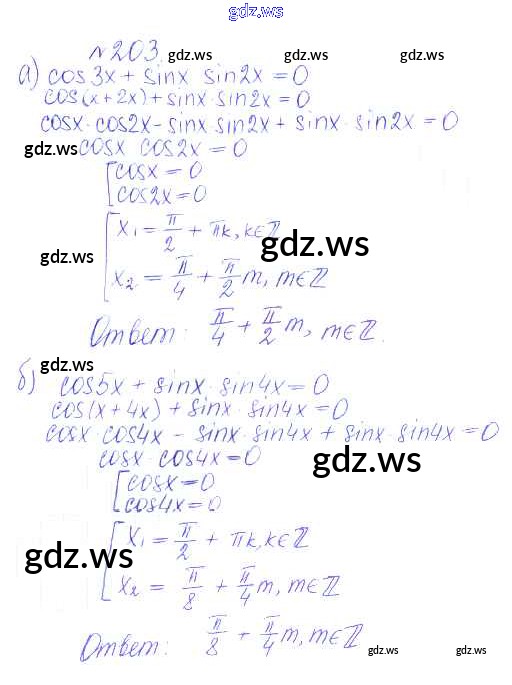 gdz.ws
№203 gdz.ws gdz.ws
а) cos3x + sinx sin2x = 0
cos(x+2x) + sinx · sin2x = 0
cosx · cos2x - sinx sin2x + sinx · sin2x = 0
gdz.ws cosx cos2x = 0
[ cosx = 0
cos2x = 0
[ x₁ = π/2 + πk, k∈ℤ
gdz.ws gdz.ws
x₂ = π/4 + π/2 m, m∈ℤ
Ответ: π/4 + π/2 m, m∈ℤ.
gdz.ws
б) cos5x + sinx · sin4x = 0
cos(x+4x) + sinx · sin4x = 0
cosx · cos4x - sinx · sin4x + sinx · sin4x = 0
cosx · cos4x = 0 gdz.ws
[ cosx = 0
cos4x = 0
[ x₁ = π/2 + πk, k∈ℤ
gdz.ws gdz.ws
x₂ = π/8 + π/4 m, m∈ℤ
Ответ: π/8 + π/4 m, m∈ℤ
gdz.ws gdz.ws